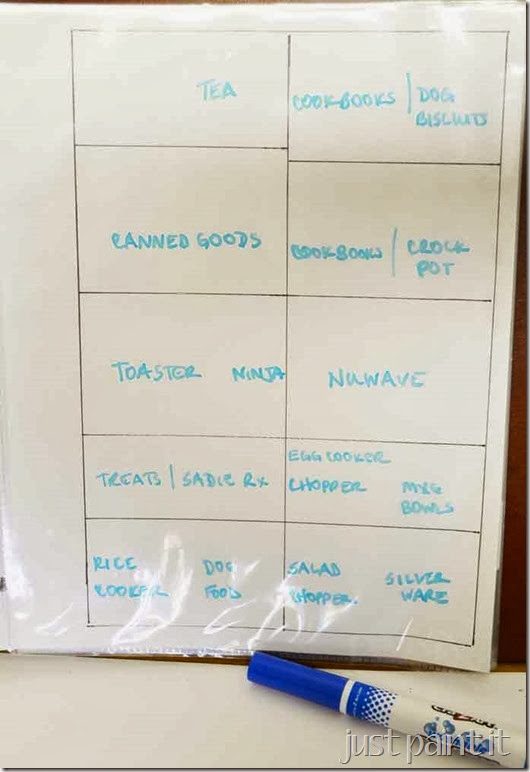 TEA
COOKBOOKS | DOG
BISCUITS
CANNED GOODS
COOKBOOKS | CROCK
POT
TOASTER NINJA
NUWAVE
TREATS | SADIE RX
EGG COOKER
CHOPPER MXG
BOWLS
RICE DOG
COOKER FOOD
SALAD SILVER
CHOPPER WARE
just paint it